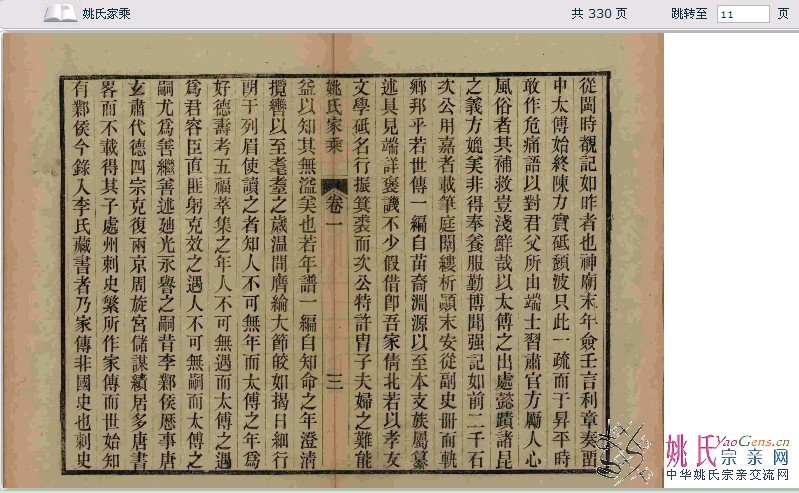 姚氏家乘
共 330 页
跳转至 11 页
從閩時覯記如昨者也神廟末年僉壬吉利章奏畱
中太傅始終陳方實砥頹波只此一疏而于昇平時
敢作危痛語以對君父所由端士習肅官方厲人心
風俗者其補救豈淺鮮哉以太傅之出處懿蹟諸昆
之義方媲美非得奉養服勤博聞强記如前二千石
次公用嘉者載筆庭闈縷析顚末安從副史冊而軼
鄉邦乎若世傳一編自苗裔淵源以至本支族屬纂
述具見端詳褒譏不少假借卽吾家倩北若以孝友
文學砥名行振箕裘而次公特許冑子夫婦之難能
姚氏家乘
卷一
三
益以知其無溢美也若年譜一編自知命之年澄淸
攬轡以至耄耋之歲温問廱綸大節皎如揭日細行
朗于列眉使讀之者知人不可無年而太傅之年爲
好德壽考五福萃集之年人不可無遇而太傅之遇
爲君容臣直匪躬克效之遇人不可無嗣而太傅之
嗣尤爲善繼善述廸光永譽之嗣昔李鄴侯歷事唐
玄肅代德四宗克復兩京周旋宮儲謀績居多唐書
畧而不載得其子處州刺史繁所作家傳而世始知
有鄴侯今錄入李氏藏書者乃家傳非國史也刺史
姚氏 YaoGens.cn
宗亲网
中华姚氏宗亲交流网